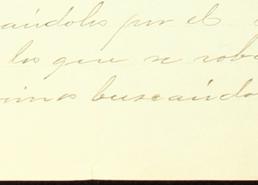 ándolos por el
los que se rob
imos buscándo